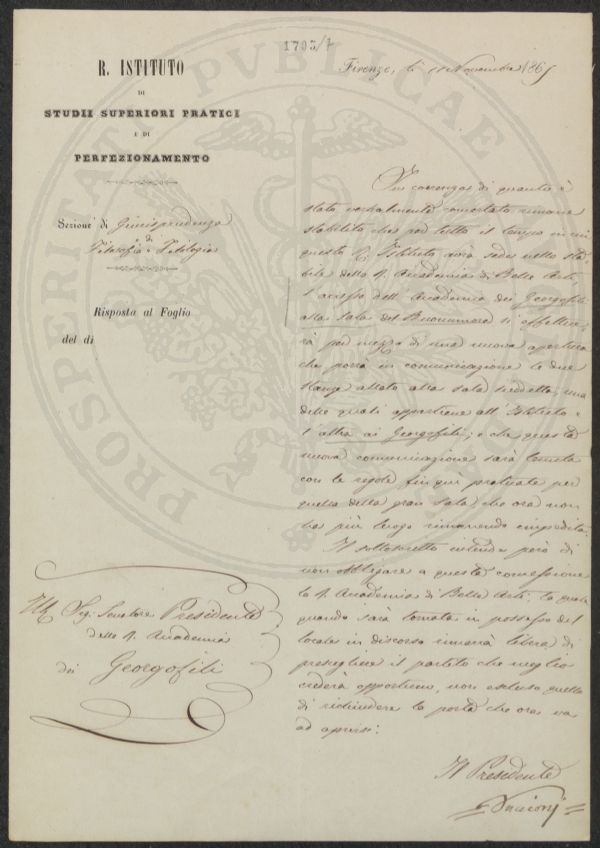 1793/7
R. ISTITUTO
DI
STUDII SUPERIORI PRATICI
E DI
PERFEZIONAMENTO
Sezione di Giurisprudenza
e di
Filosofia e Filologia
Risposta al Foglio
del dì
Firenze, li Novembre 186
In coerenza di quanto è
stato verbalmente concertato rimane
stabilito che per tutto il tempo in cui
questo R. Istituto avrà sede nello sta-
bile della R. Accademia di Belle Arti,
l'accesso dell'Accademia dei Georgofili
alla sala del Buonumore si effettue-
rà per mezzo di una nuova apertura
che porrà in comunicazione le due
stanze allato alla sala suddetta, una
delle quali appartiene all'Istituto e
l'altra ai Georgofili; e che questa
nuova comunicazione sarà tenuta
con le regole fin qui praticate per
quella della gran sala, che ora non
ha più luogo rimanendo impedita.
Il sottoscritto intende però di
non obbligare a questa concessione
la R. Accademia di Belle Arti, la quale
quando sarà tornata in possesso del
locale in discorso rimarrà libera di
prescegliere il partito che meglio
crederà opportuno, non escluso quello
di richiudere la porta che ora va
ad aprirsi.
Il Presidente
Sig. Senatore Presidente
della R. Accademia
dei Georgofili
PROSPERITATI PUBLICAE